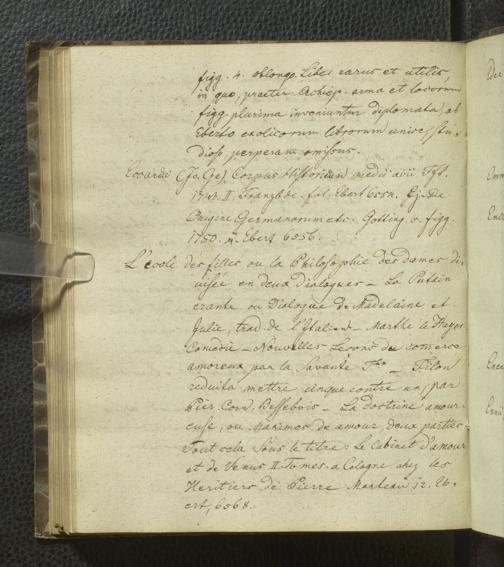 figg. 4. oblongo. Liber rarus et utilis,
in quo, praeter Archiep. arma et locorum
figg. plurima inveniuntur diplomata, ab
Eberto exoticorum librorum unice stu-
dioso perperam omissus.
Eccardi (Jo. Ge.) Corpus Historicum medii aevi. Fft.
1743. II. Franzbde. fol. Ebert 6554. Ej. De
Origine Germanorum etc. Gotting. c. figg.
1750. 4. Ebert 6556.
L'école des filles ou la Philosophie des dames di-
visée en deux dialogues – La Putain
erante ou Dialogue de Madelaine et
Julie, trad. de l'Italien – Marthe le
Comedie – Nouvelles Leçons du comerce
amoreux par la Savante T** – Filon
reduit a mettre cinque contre en par
Pier. Corn. Blessebois – La doctrine amour-
euse, ou Maximes de amour, deux parties.
Tout cela sous le titre: Le cabinet d'amour
et de Venus II Tomes. a Cologne chez les
Heritiers de Pierre Marteau 12. Eb-
ert, 6068.